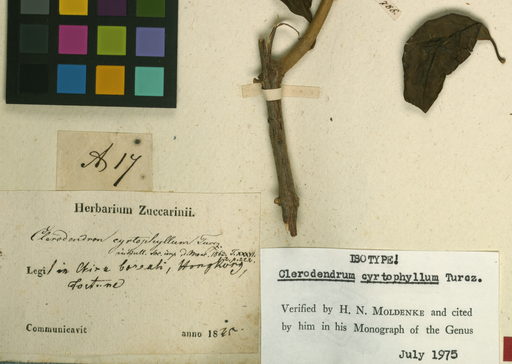 A 17
Herbarium Zuccarinii.
Clerodendron cyrtophyllum Turcz.
in Bull. Soc. imp. d. Mosc. 1863.
Legit in China boreali, Hongkong,
Fortune
Communicavit anno 18
ISOTYPE!
Clerodendrum cyrtophyllum Turcz.
Verified by H. N. MOLDENKE and cited
by him in his Monograph of the Genus
July 1975